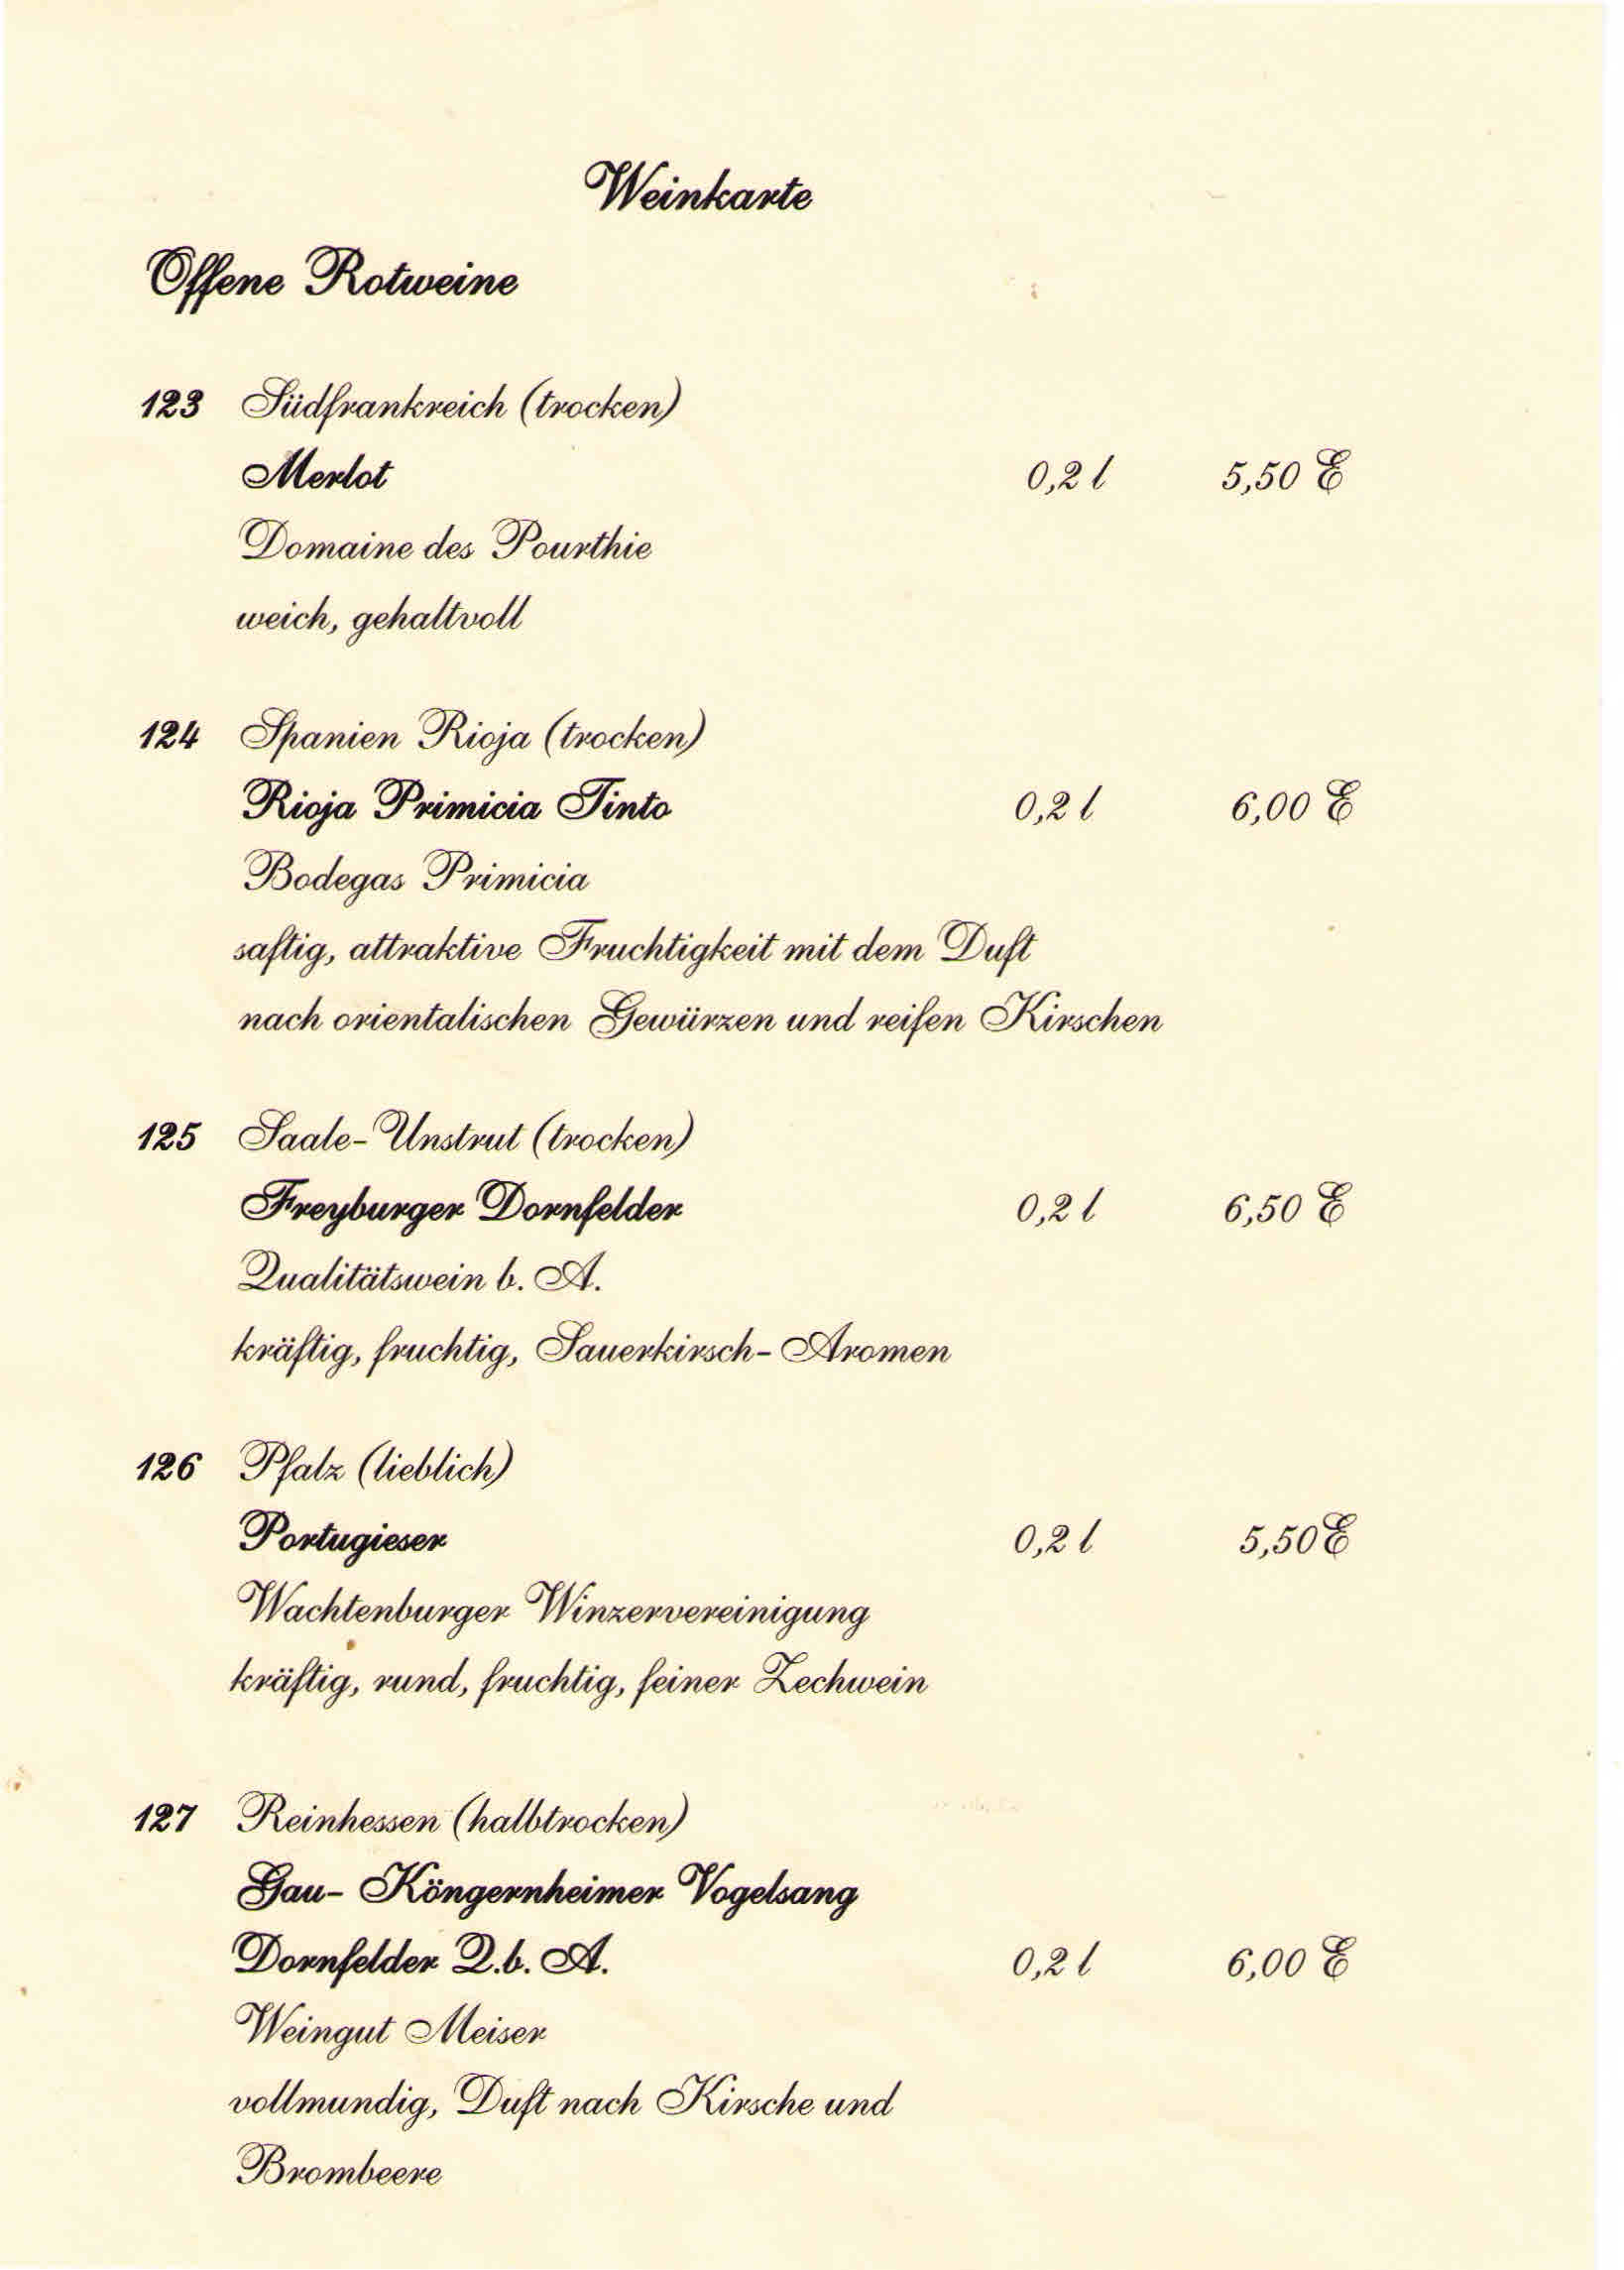 Weinkarte
Offene Rotweine
123 Südfrankreich (trocken)
Merlot 0,2 l 5,50 E
Domaine des Pourthie
weich, gehaltvoll
124 Spanien Rioja (trocken)
Rioja Primicia Tinto 0,2 l 6,00 E
Bodegas Primicia
saftig, attraktive Fruchtigkeit mit dem Duft
nach orientalischen Gewürzen und reifen Kirschen
125 Saale- Unstrut (trocken)
Freyburger Dornfelder 0,2 l 6,50 E
Qualitätswein b. A.
kräftig, fruchtig, Sauerkirsch- Aromen
126 Pfalz (lieblich)
Portugieser 0,2 l 5,50 E
Wachtenburger Winzervereinigung
kräftig, rund, fruchtig, feiner Zechwein
127 Reinhessen (halbtrocken)
Gau- Köngernheimer Vogelsang
Dornfelder Q.b. A. 0,2 l 6,00 E
Weingut Meiser
vollmundig, Duft nach Kirsche und
Brombeere